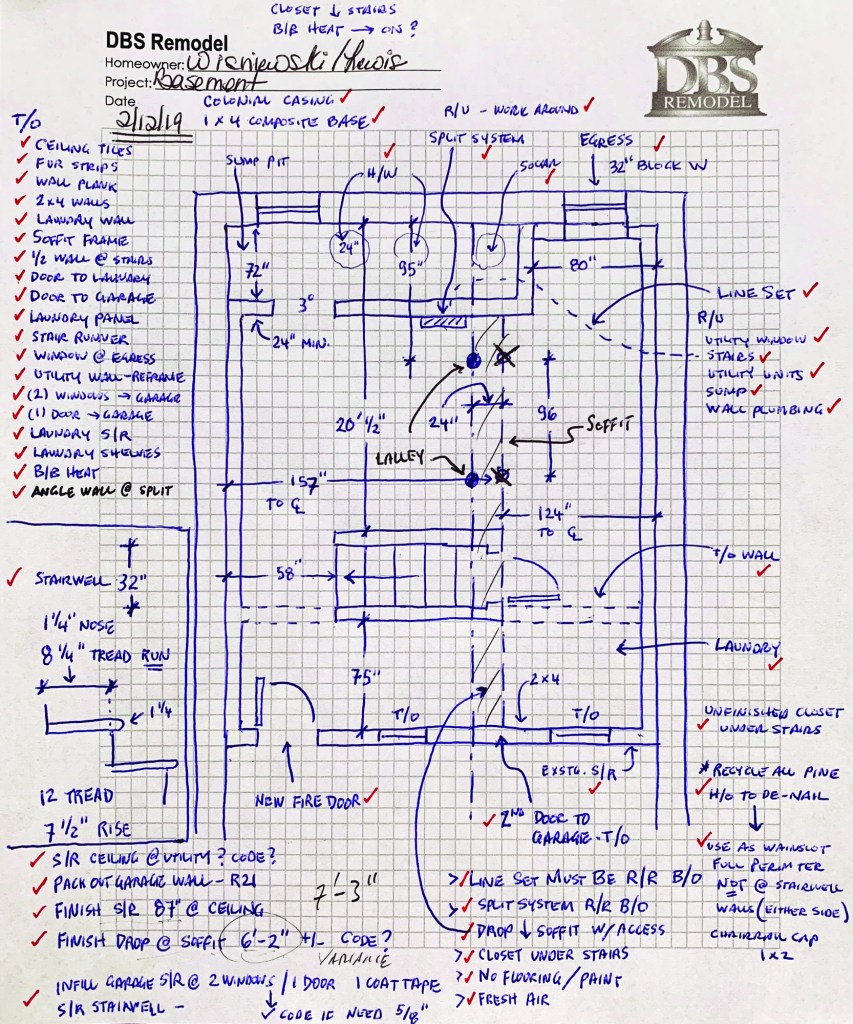 CLOSET ↓ STAIRS
B/B HEAT → ON?
DBS Remodel
Homeowner: Wisniewski / Lewis
Project: Basement
Date 2/12/19
DBS
REMODEL
COLONIAL CASING ✓
1 x 4 COMPOSITE BASE ✓
R/U - WORK AROUND ✓
SPLIT SYSTEM ✓
EGRESS ✓
32" BLOCK W
SUMP PIT
H/W ✓
SOLAR ✓
T/O
✓ CEILING TILES
✓ FUR STRIPS
✓ WALL PLANK
✓ 2x4 WALLS
✓ LAUNDRY WALL
✓ SOFFIT FRAME
✓ 1/2 WALL @ STAIRS
✓ DOOR TO LAUNDRY
✓ DOOR TO GARAGE
✓ LAUNDRY PANEL
✓ STAIR RUNNER
✓ WINDOW @ EGRESS
✓ UTILITY WALL-REFRAME
✓ (2) WINDOWS → GARAGE
✓ (1) DOOR → GARAGE
✓ LAUNDRY S/R
✓ LAUNDRY SHELVES
✓ B/B HEAT
✓ ANGLE WALL @ SPLIT
24"
72"
95"
80"
3⁰
24" MIN.
LINE SET ✓
R/U
UTILITY WINDOW ✓
STAIRS ✓
UTILITY UNITS ✓
SUMP ✓
WALL PLUMBING ✓
20' 1/2"
24"
96
SOFFIT
LALLEY
157"
TO ℄
124"
TO ℄
58"
T/O WALL ✓
LAUNDRY ✓
75"
2x4
T/O
T/O
NEW FIRE DOOR ✓
EXSTG. S/R ✓
✓ 2ND DOOR TO
GARAGE - T/O
✓ STAIRWELL 32"
1 1/4" NOSE
8 1/4" TREAD RUN
1 1/4
12 TREAD
7 1/2" RISE
UNFINISHED CLOSET
✓ UNDER STAIRS
* RECYCLE ALL PINE
✓ H/O TO DE-NAIL
✓ USE AS WAINSCOT
FULL PERIMTER
NOT @ STAIRWELL
WALLS (EITHER SIDE)
CHAIRRAIL CAP
1x2
✓ S/R CEILING @ UTILITY? CODE?
✓ PACK OUT GARAGE WALL - R21
✓ FINISH S/R 87" @ CEILING
7'-3"
✓ FINISH DROP @ SOFFIT 6'-2" +/- CODE?
VARIANCE
INFILL GARAGE S/R @ 2 WINDOWS / 1 DOOR 1 COAT TAPE
✓ S/R STAIRWELL -
✓ CODE IF NEED 5/8"
> ✓ LINE SET MUST BE R/R B/O
> ✓ SPLIT SYSTEM R/R B/O
✓ DROP ↓ SOFFIT W/ACCESS
> ✓ CLOSET UNDER STAIRS
> ✓ NO FLOORING/PAINT
> ✓ FRESH AIR